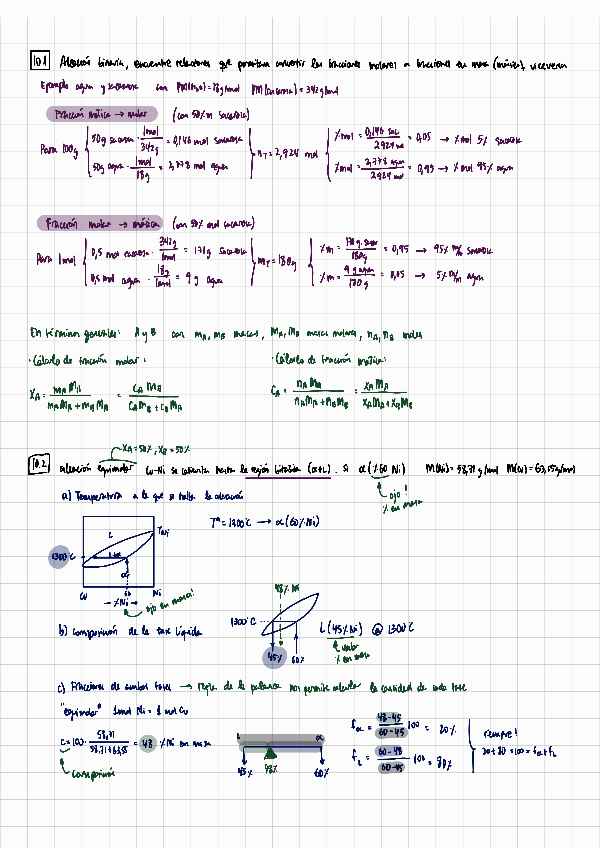 10.1 Aleación binaria, encuentre relaciones que permitan convertir las fracciones molares a fracciones en masa (másica), viceversa
Ejemplo agua y sacarosa con PM(H2O)=18g/mol PM(sacarosa)=342g/mol
Fracción mática → molar (con 50%m sacarosa)
Para 100g
50g sacarosa · 1mol/342g = 0,146 mol sacarosa
50g agua · 1mol/18g = 2,778 mol agua
nT = 2,924 mol
%mol = 0,146 sac/2,924 mol = 0,05 → %mol 5% sacarosa
%mol = 2,778 agua/2,924 mol = 0,95 → %mol 95% agua
Fracción molar → másica (con 50% mol sacarosa)
Para 1mol
0,5 mol sacarosa · 342g/1mol = 171g sacarosa
0,5 mol agua · 18g/1mol = 9 g agua
mT = 180g
%m = 171 g sacar/180g = 0,95 → 95% m/m sacarosa
%m = 9 g agua/180 g = 0,05 → 5% m/m agua
En términos generales: A y B con mA, mB masas, MA, MB masas molares, nA, nB moles
· Cálculo de fracción molar: · Cálculo de fracción mática:
XA = mA MB / mA MB + mB MA = CA MB / CA MB + CB MA
CA = nA MA / nA MA + nB MB = XA MA / XA MA + XB MB
XA=50%, XB=50%
10.2 aleación equimolar Cu-Ni se calienta hasta la región bifásica (α+L). Si α(%60 Ni) M(Ni)=58,71 g/mol M(Cu)=63,15g/mol
ojo!
% en masa
a) Temperatura a la que se halla la aleación
L
TNi
1300°C
α
60
Cu Ni
%Ni
ojo en masa!
Tª=1300°C → α(60%Ni)
b) Composición de la fase líquida
48% Ni
1300°C
45% 60%
L(45%Ni) @ 1300°C
% en masa
c) Fracciones de ambas fases → regla de la palanca nos permite calcular la cantidad de cada fase
"equimolar" 1mol Ni = 1 mol Cu
C=100· 58,71/58,71+63,55 = 48 %Ni en masa
composición
L α
45% 48% 60%
fα = 48-45/60-45 · 100 = 20%
fL = 60-48/60-45 · 100 = 80%
siempre!
20+80=100=fα+fL